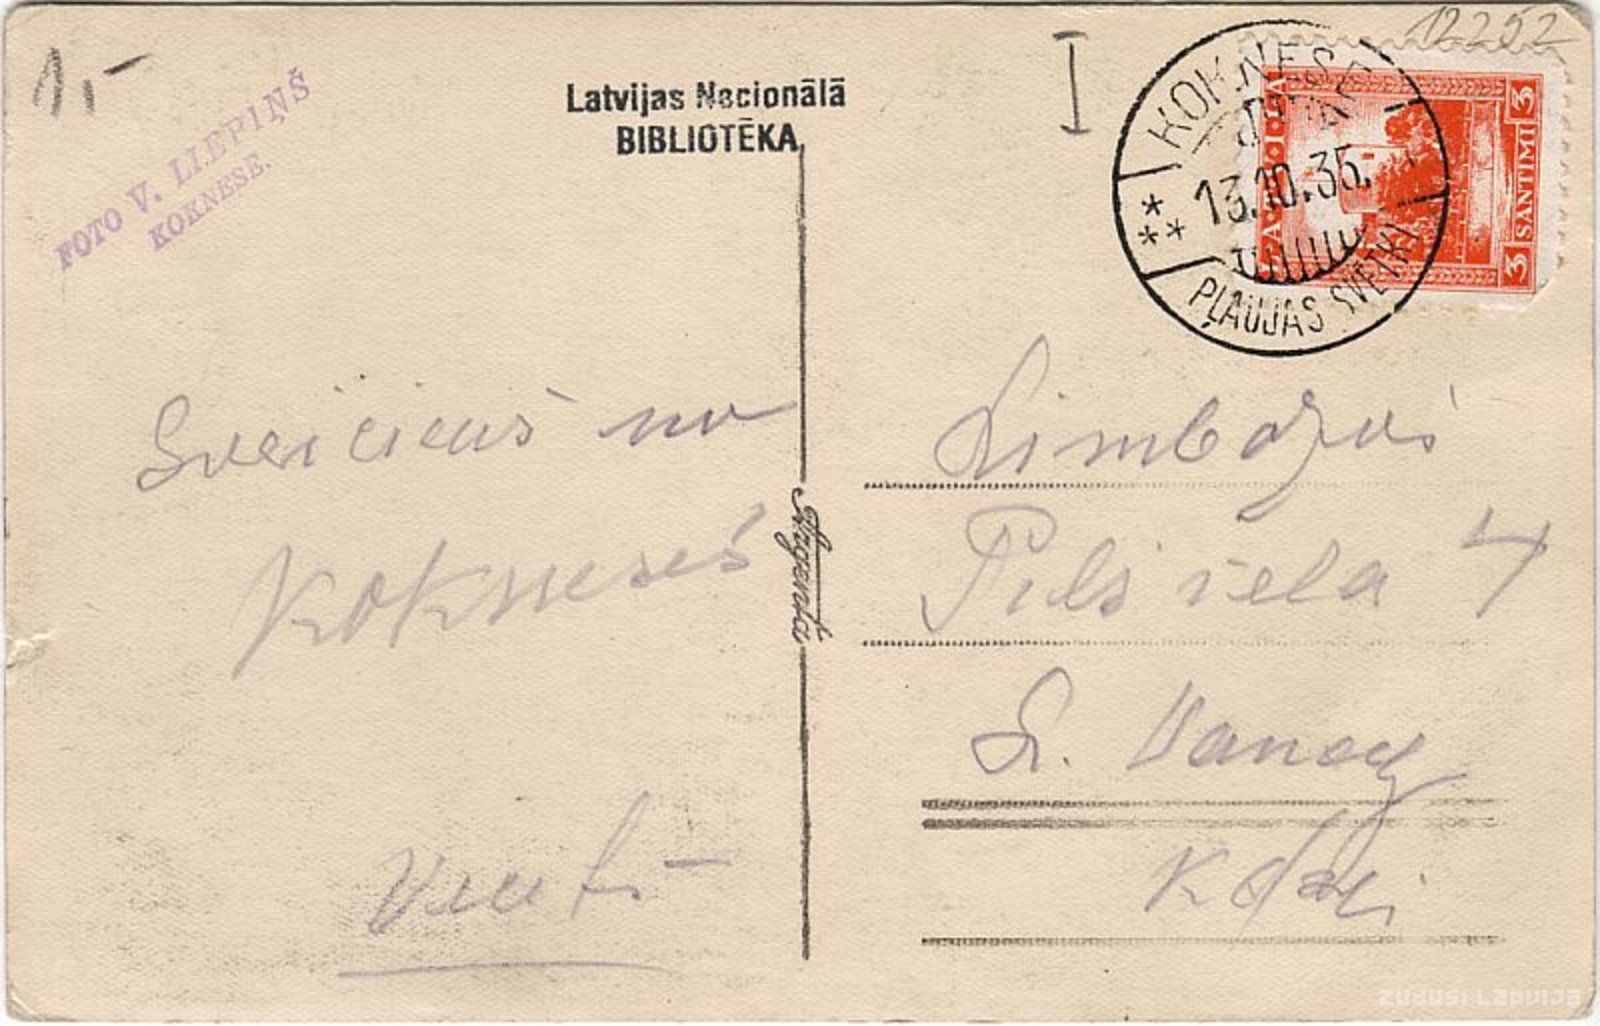 12252
1.-
FOTO V. LIEPIŅŠ
KOKNESE.
Latvijas Nacionālā
BIBLIOTĒKA
I
KOKNESE
13.10.35.
PĻAUJAS SVĒTKI
LATVIJA
3 SANTIMI 3
Sveiciens no
Kokneses
Argenta
Limbažos
Pils iela 4
K
zudusi latvija